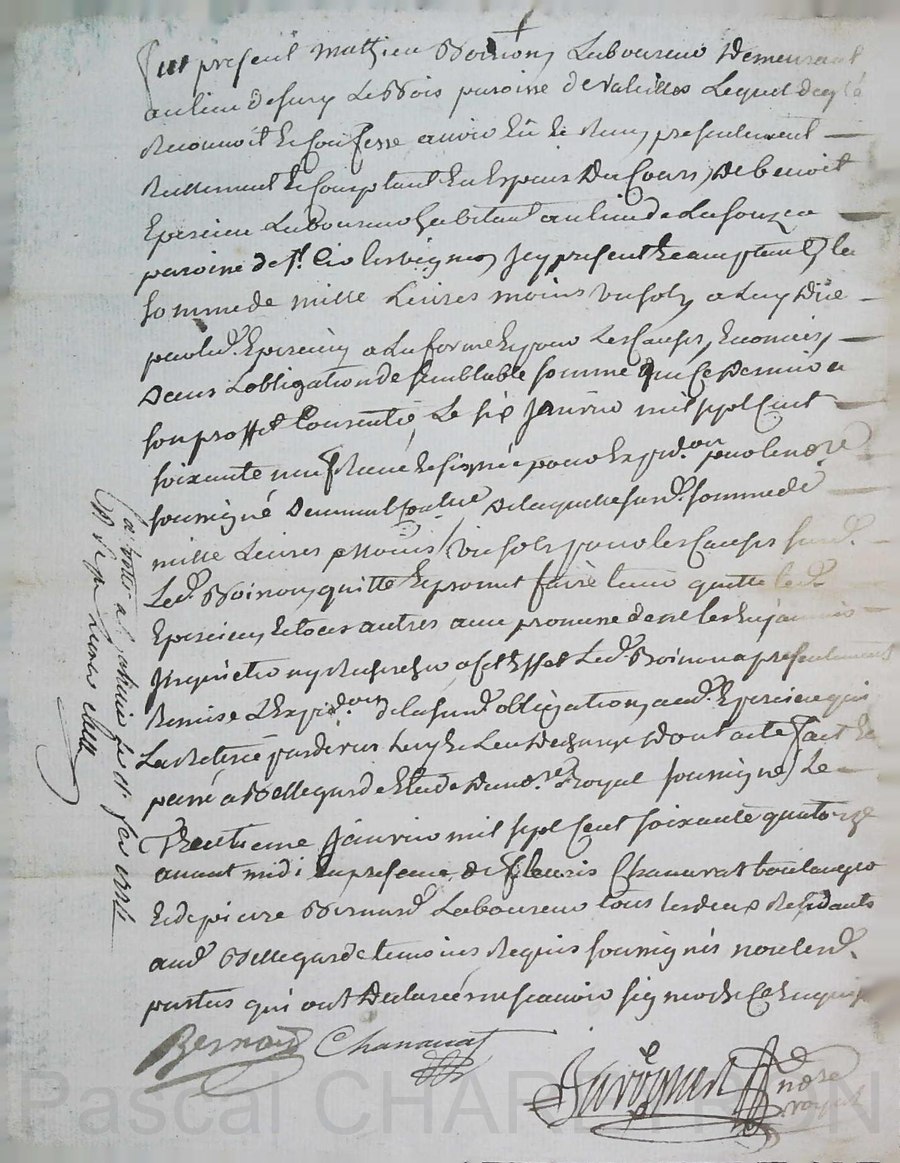 fut présent mathieu Boinon Laboureur Demeurant
au lieu de sury Le Bois paroisse de valeilles Lequel de gré
Reconnoit Et Confesse avoir Eû Et Reçu présentement
Réellement Et Comptant En Especes Du Cours De benoit
Epercieu Laboureur habitant au lieu de La fouza
paroisse de st. Cir les vignes Icy present Et acceptant la
somme de mille Livres moins un sols a Luy Düe
par led. Epercieu a La forme Et pour Les Causes Enoncées
Dans L'obligation de semblable somme que Ce Dernier a
son proffit Consentie Le six Janvier mil sept Cent
soixante neuf Reçue Et signée pour Expedon par le nore
soussigné De laquelle susd. somme de
mille Livres moins un sols pour les Causes susd.
Led. Boinon quitte Et promet faire tenir quitte led.
Epercieu Et tous autres avec promesse de ne les En jamais
Inquietter ny Rechercher a Cet Effet Led. Boinon a presentement
Remise L'Expedon de la susd. obligation aud. Epercieu qui
La Retirée pardevers Luy Dont acte fait Et
passé a Bellegarde Etude Du nore Royal soussigné Le
Trentieme Janvier mil sept Cent soixante quatorze
avant midi En presence de fleuris Chanavat boulanger
Et de pierre Bernard Laboureur tous les deux Residants
aud. Bellegarde temoins Requis soussignés non lesd.
parties qui ont Declaré ne scavoir signer de Ce Enquis
Bernard Chanavat
nore
royal
Pascal CHAREYRON